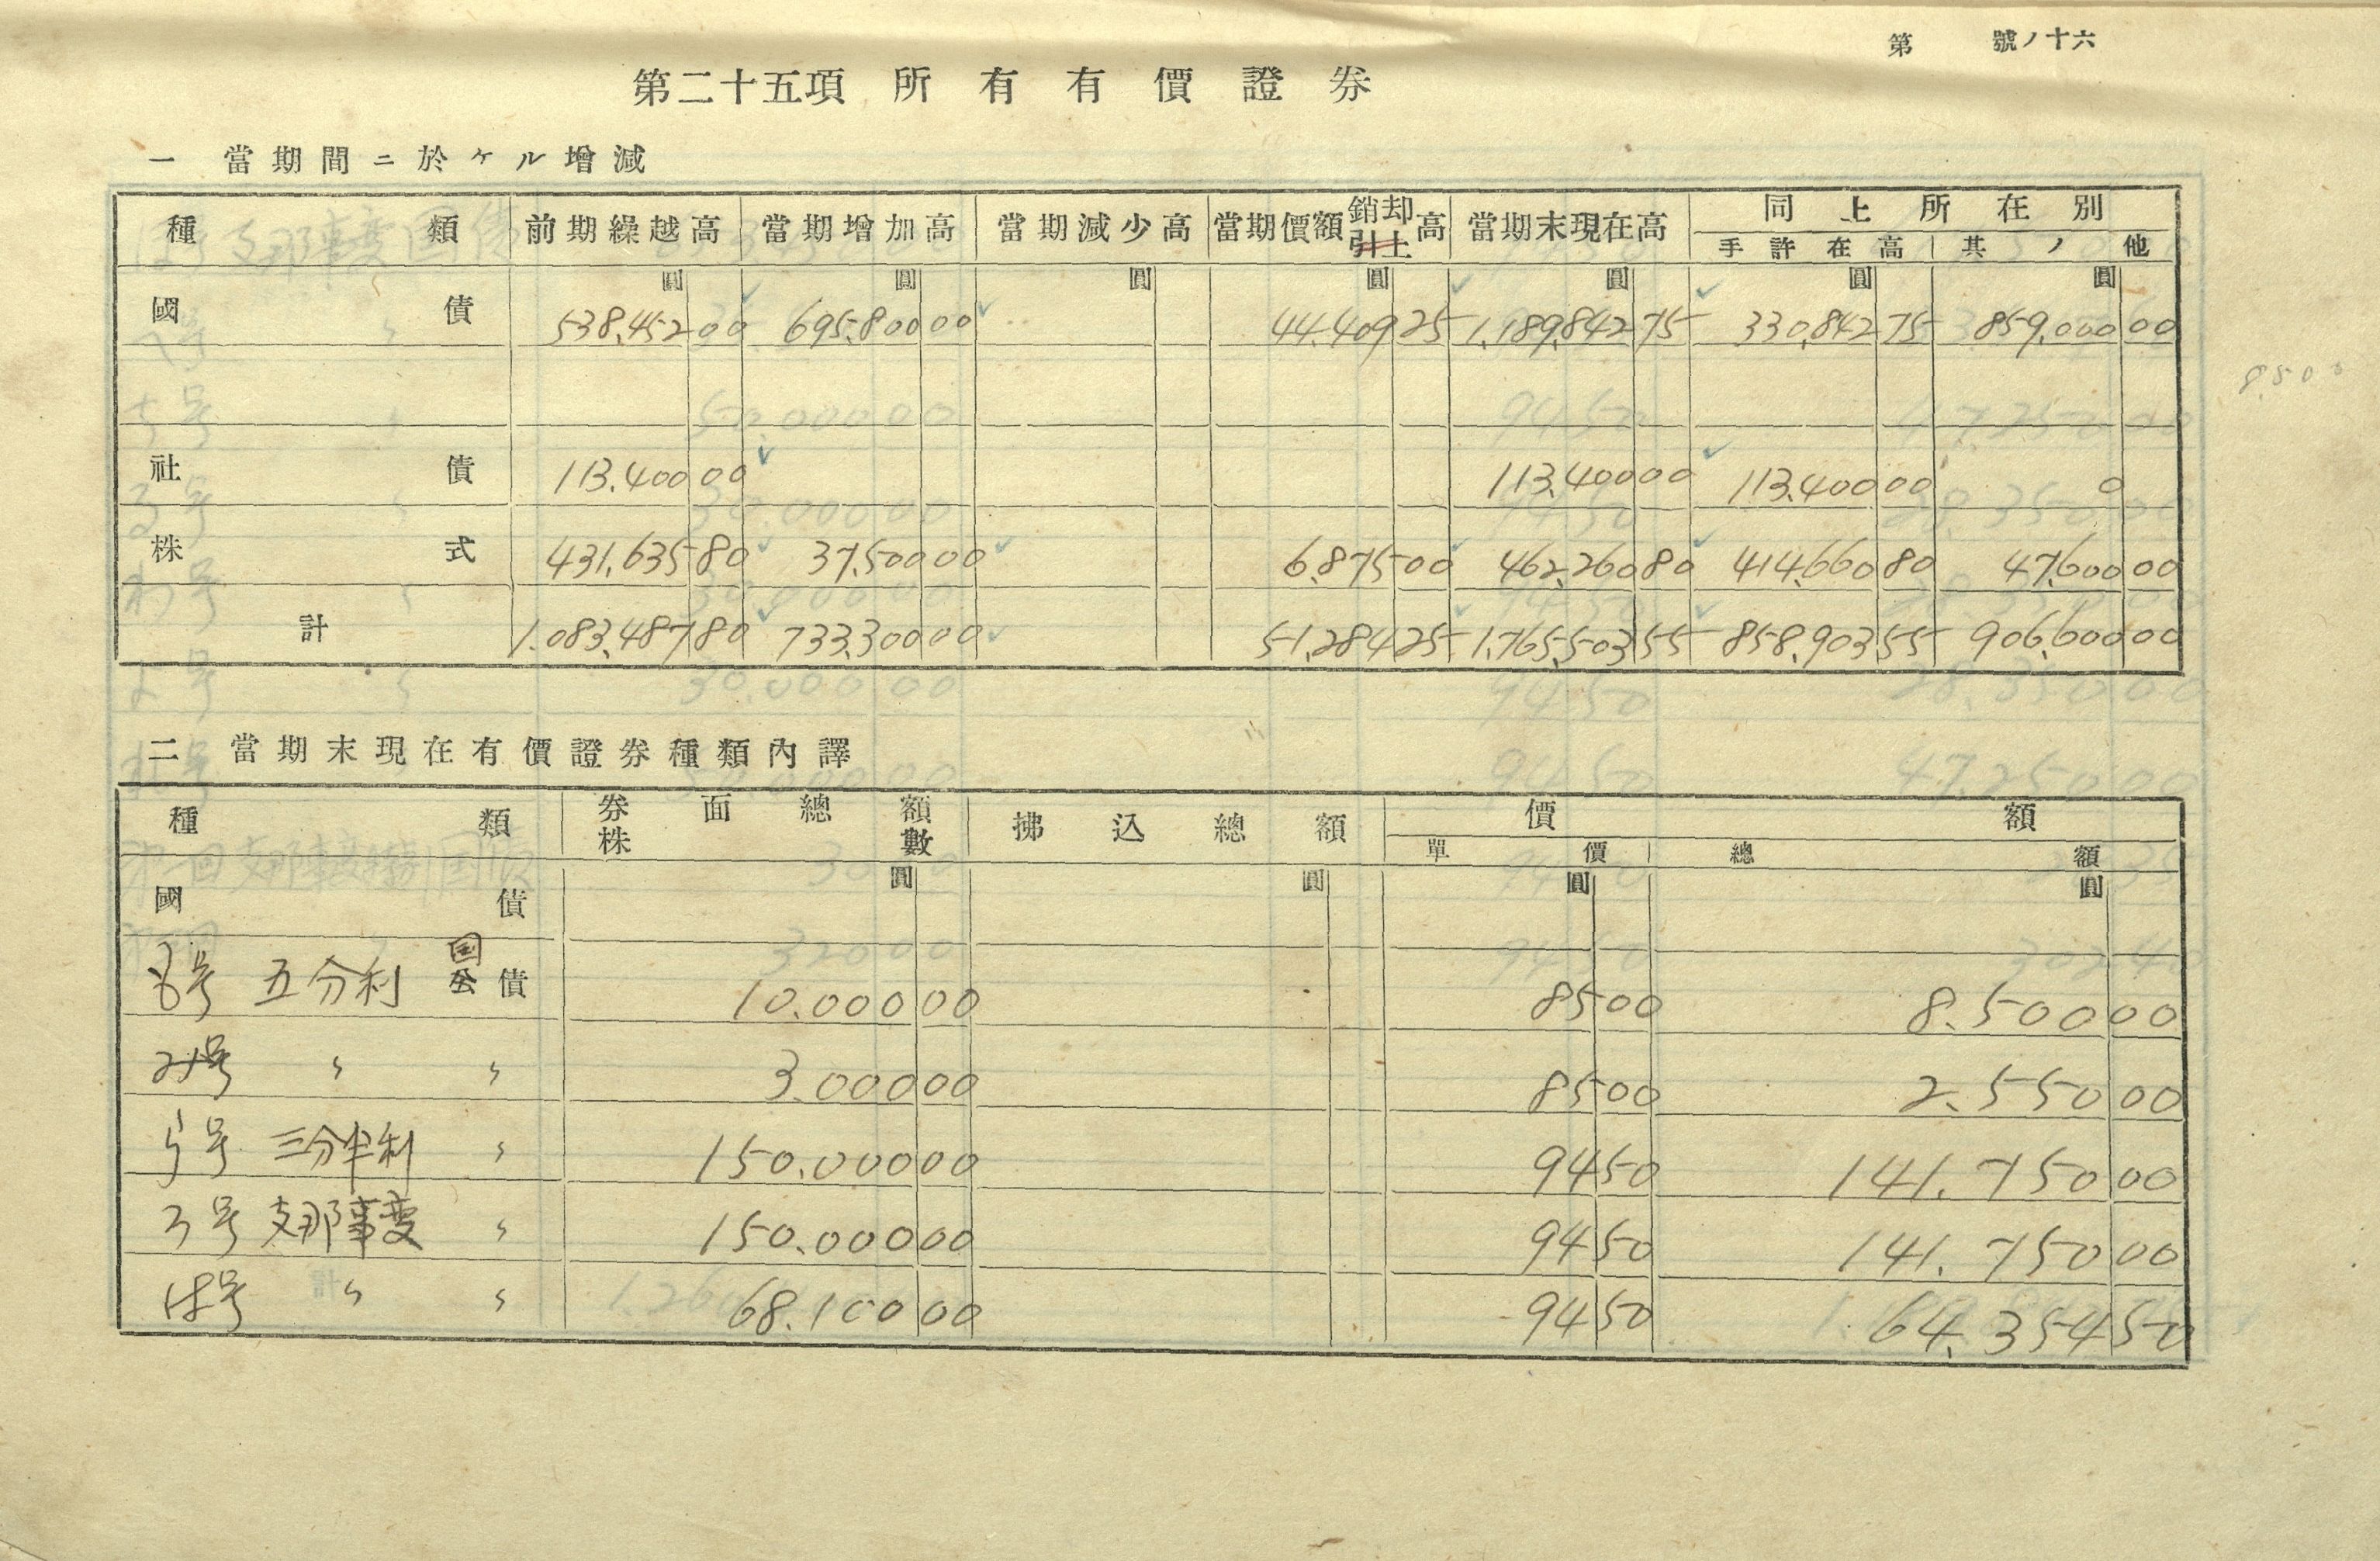 第 號ノ十六
第二十五項 所有有價證券
一 當期間ニ於ケル增減
種類 前期繰越高 當期增加高 當期減少高 當期價額銷却引上高 當期末現在高 同上所在別
手許在高 其ノ他
圓 圓 圓 圓 圓 圓 圓
國債 538,452 00 695,800 00 44,409 25 1,189,842 75 330,842 75 859,000 00
8500
社債 113,400 00 113,400 00 113,400 00 0
株式 431,635 80 37,500 00 6,875 00 462,260 80 414,660 80 47,600 00
計 1,083,487 80 733,300 00 51,284 25 1,765,503 55 858,903 55 906,600 00
二 當期末現在有價證券種類內譯
種類 券面總額 株數 拂込總額 價額
單價 總額
圓 圓 圓 圓
國債
も号 五分利 国公債 10.000 00 85 00 8.500 00
み号 〃 〃 3.000 00 85 00 2.550 00
う号 三分半利 〃 150.000 00 94 50 141.750 00
ろ号 支那事変 〃 150.000 00 94 50 141.750 00
は号 〃 〃 68.100 00 94 50 64.354 50